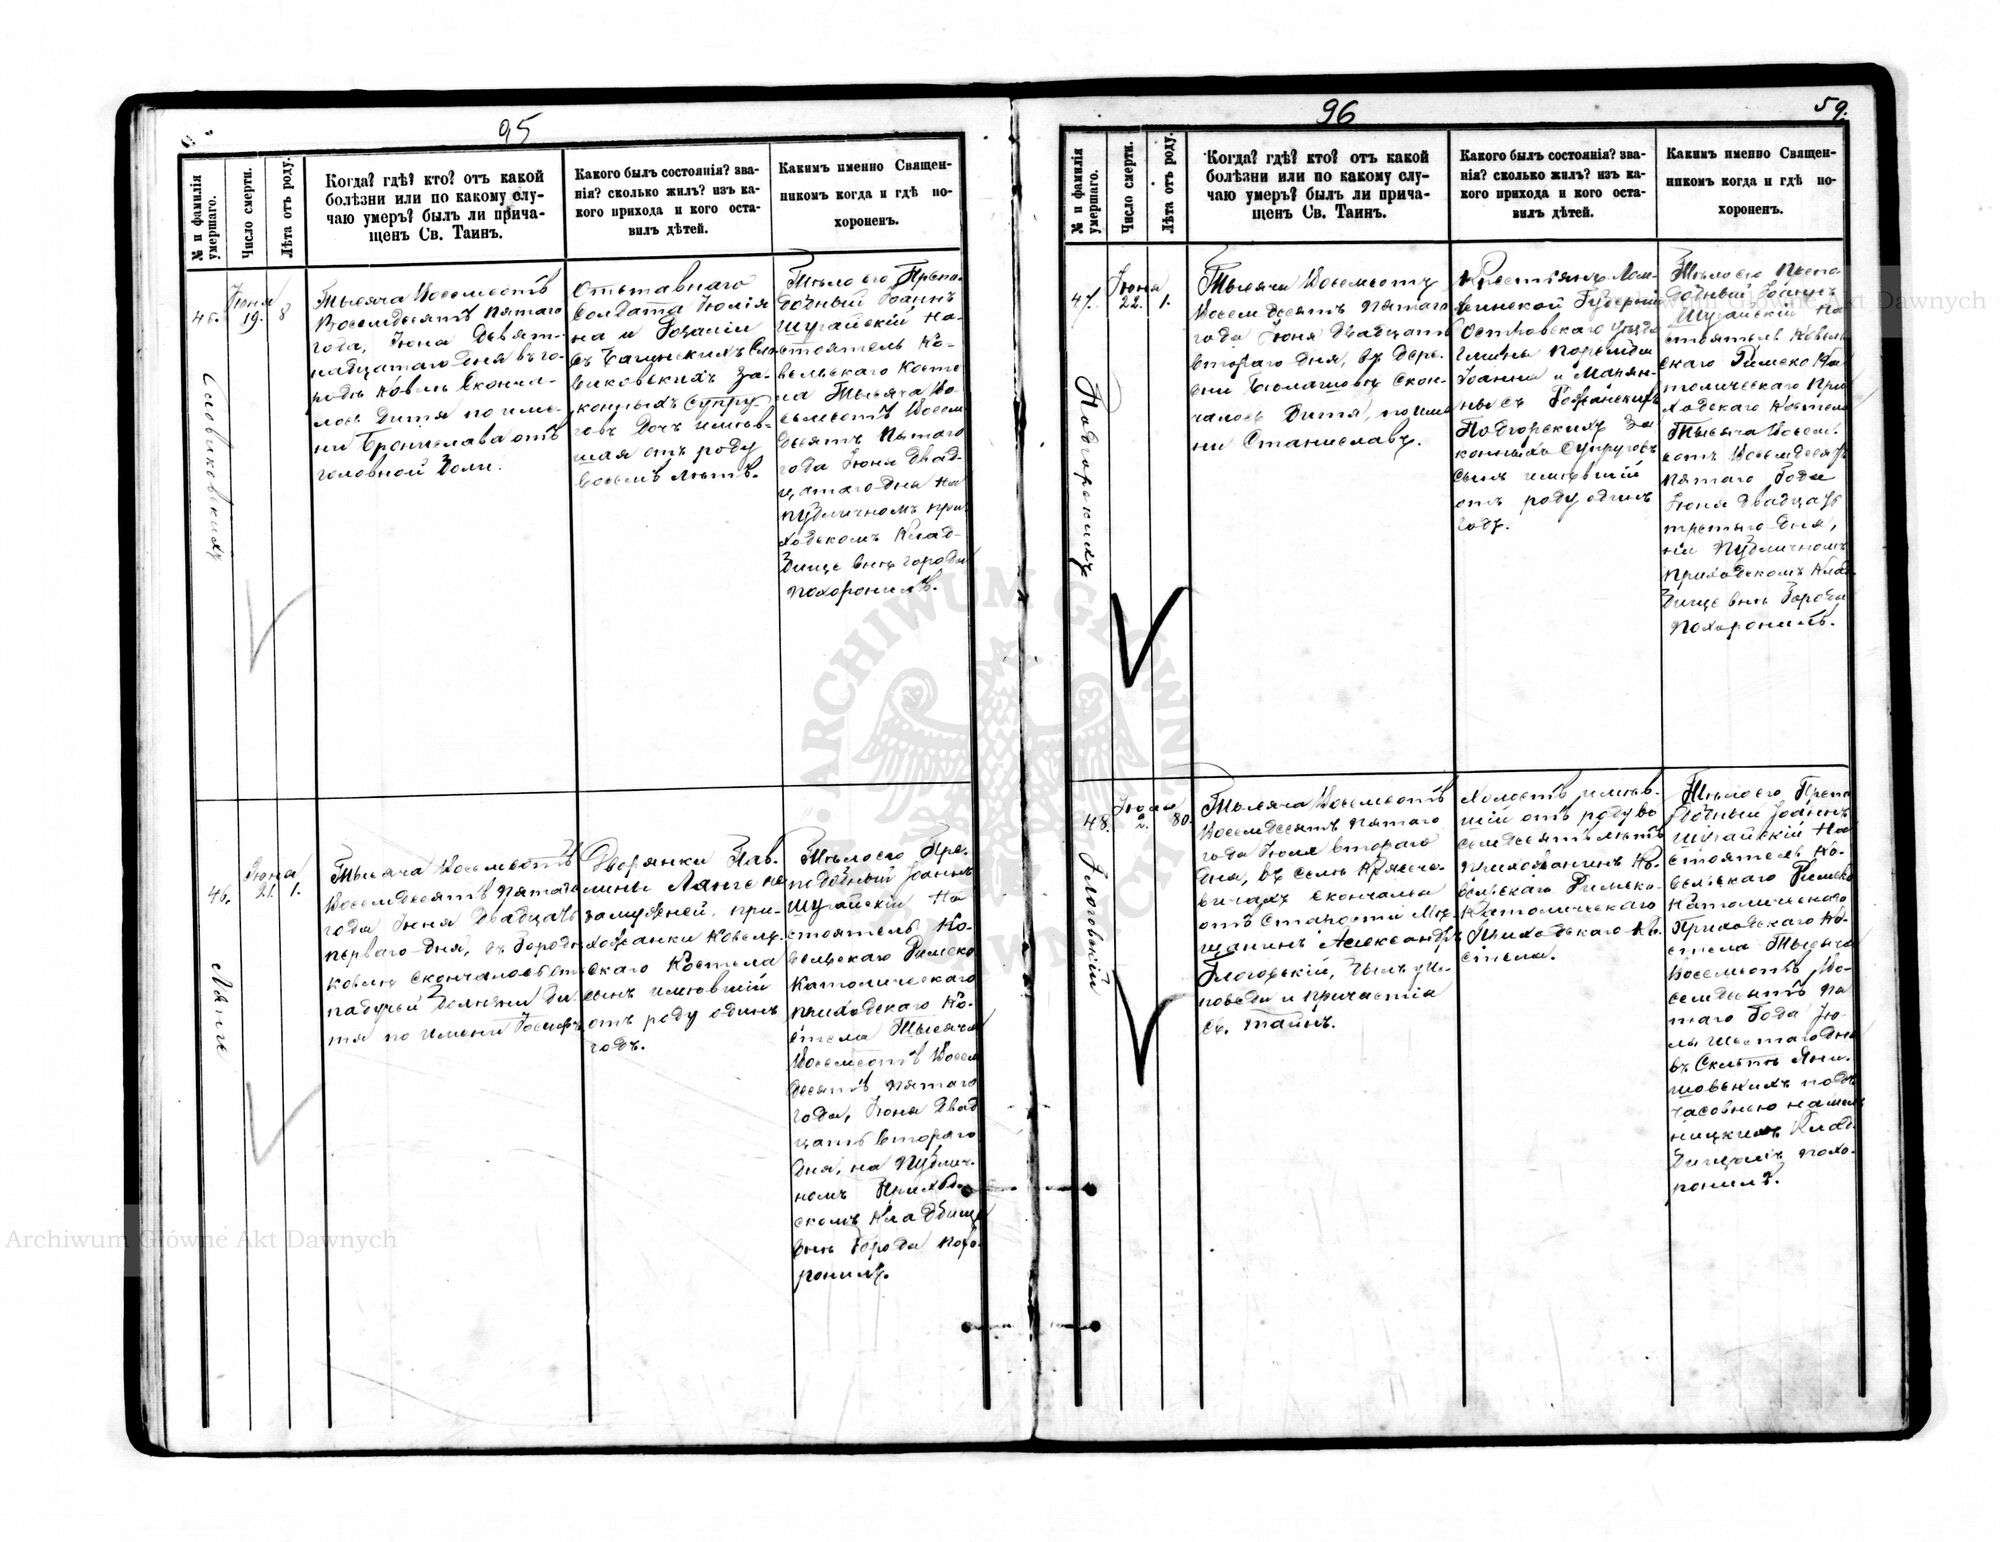 95
№ и фамилія умершаго.
Число смерти.
Лѣта отъ роду.
Когда? гдѣ? кто? отъ какой
болѣзни или по какому слу-
чаю умеръ? былъ ли прича-
щенъ Св. Таинъ.
Какого былъ состоянія? зва-
нія? сколько жилъ? изъ ка-
кого прихода и кого оста-
вилъ дѣтей.
Какимъ именно Священ-
никомъ когда и гдѣ по-
хороненъ.
45.
Словиковскихъ
Іюня
19.
8
Тысяча Восемьсотъ
Восемдесятъ Пятаго
года, Іюня Девят-
надцатаго дня въ го-
родѣ Ковлѣ Сконча-
лось Дитя по име-
ни Брониславa отъ
головной Боли.
Отставнаго
Солдата Юлія
на и Розаліи
съ Сло-
виковскихъ За-
конныхъ Супру-
говъ Дочь имев-
шая отъ роду
восемь лѣтъ.
Тѣло его Препо-
добный Іоаннъ
Шугайскій На-
стоятель Ко-
вельскаго Косте
ла Тысяча Во-
семьсотъ Восем
десятъ Пятаго
года Іюня Двад-
цатаго дня на
публичномъ при-
ходскомъ Клад-
бище внѣ города
похоронилъ.
46.
Лянге
Іюня
21.
1.
Тысяча Восемьсотъ
Восемдесятъ пятаго
года Іюня Двадцать
перваго Дня, въ Городѣ
Ковлѣ скончалось отъ
падучей Болезни Ди
тя по имени Іосифъ
Дворянки Пав-
лины Лянге не
замужней, при-
хожанки Ковель-
скаго Костела
сынъ имевшій
отъ роду одинъ
годъ.
Тѣло его Пре-
подобный Іоаннъ
Шугайскій На
стоятель Ко-
вельскаго Римско
Католическаго
приходскаго Ко-
стела Тысяча
Восемьсотъ Восем
десятъ пятаго
года, Іюня Двад
цать втораго
дня, на Публич-
номъ Приход-
скомъ Кладбище
внѣ Города похо-
ронилъ.
96
59.
№ и фамилія умершаго.
Число смерти.
Лѣта отъ роду.
Когда? гдѣ? кто? отъ какой
болѣзни или по какому слу-
чаю умеръ? былъ ли прича-
щенъ Св. Таинъ.
Какого былъ состоянія? зва-
нія? сколько жилъ? изъ ка-
кого прихода и кого оста-
вилъ дѣтей.
Какимъ именно Священ-
никомъ когда и гдѣ по-
хороненъ.
47.
Подгорскихъ
Іюня
22.
1.
Тысяча Восемьсотъ
Восемдесятъ Пятаго
года Іюня Двадцать
втораго дня, въ Дере-
вни Скон-
чалось Дитя, по име
ни Станиславъ.
Крестьянъ Лом-
жинской Губерніи
Островскаго уѣзда
Гмины
Іоанна и Марян-
ны съ Рожанскихъ
Подгорскихъ За
конныхъ Супруговъ
сынъ имѣвшій
отъ роду одинъ
годъ.
Тѣло его Препо
добный Іоаннъ
Шугайскій На
стоятель Ковель
скаго Римско Ка
толическаго При
ходскаго Костела
Тысяча Восемь
сотъ Восемдесятъ
пятаго Года
Іюня Двадцать
третьяго Дня,
на Публичномъ
приходскомъ Клад
бище внѣ Города
похоронилъ.
48.
Глоговскій
Іюля
2.
80.
Тысяча Восемьсотъ
Восемдесятъ пятаго
года Іюля втораго
дня, въ селѣ
скончался
отъ старости Мѣ-
щанинъ Александръ
Глогорскій, былъ у Ис-
поведи и причастія
Св. Тайнъ.
Холостъ имѣв-
шій отъ роду во
семдесятъ лѣтъ
прихожанинъ Ко-
вельскаго Римско-
Католическаго
Приходскаго Ко-
стела.
Тѣло его Препо
добный Іоаннъ
Шугайскій На
стоятель Ко-
вельскаго Римско
Католическаго
Приходскаго Ко-
стела Тысяча
Восемьсотъ Во-
семдесятъ Пя
таго Года Ію-
ля Шестаго дня
въ
подъ
часовнею на
Клад-
похо-
ронилъ.
Archiwum Główne Akt Dawnych
Archiwum Główne Akt Dawnych
ARCHIWUM GŁÓWNE AKT DAWNYCH